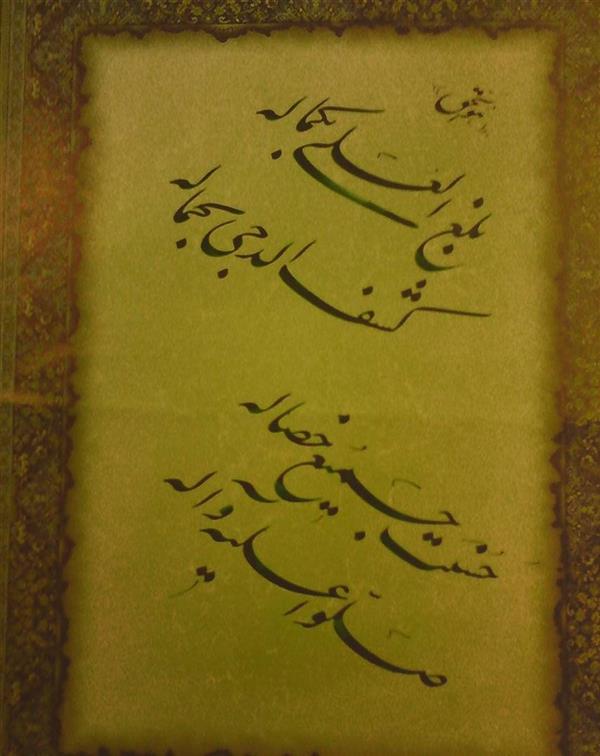 بلغ العلی بکماله
کشف الدجی بجماله
حسنت جمیع خصاله
صلوا علیه واله